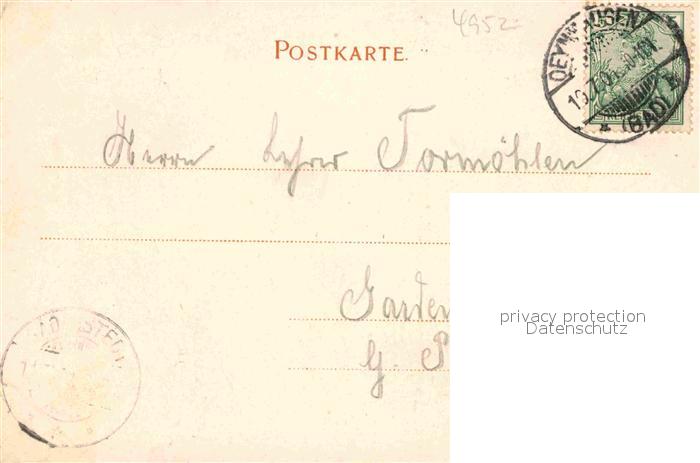 4952
POSTKARTE.
OEYNHAUSEN
(BAD)
Herrn Lehrer Tormöhlen
Garden
G. P
privacy protection
Datenschutz